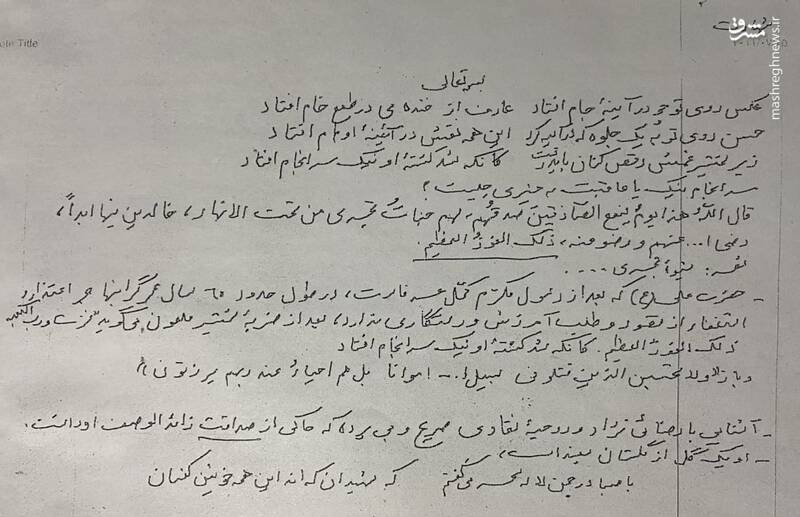 ote Title
مشرق
mashreghnews.ir
بسمه تعالی
عکس روی تو چو در آینهٔ جام افتاد عارف از خنده می در طمع خام افتاد
حسن روی تو به یک جلوه که در آینه کرد این همه نقش در آئینهٔ اوهام افتاد
زیر شمشیر غمش رقص کنان باید رفت کانکه شد کشتهٔ او نیک سرانجام افتاد
سرانجام نیک یا عاقبت به خیری چیست؟
قال الله: هذا یوم ینفع الصّادقین صدقهم لهم جنات تجری من تحت الانهار، خالدین فیها ابداً،
رضی ا... عنهم و رضو عنه، ذلک الفوز العظیم.
تجری ....
- حضرت علی (ع) که بعد از رسول مکرم است، در طول حدود ۶۰ سال عمر گرانبها جز اعتذار و
استغفار از قصور و طلب آمرزش و رستگاری ندارد، بعد از ضربهٔ شمشیر ملعون میگوید: فزت و رب الکعبه
ذلک الفوز العظیم. کانکه شد کشتهٔ او نیک سرانجام افتاد
و لا تحسبن الذین قتلو فی سبیل ا... امواتا بل هم احیاءٌ عند ربهم یرزقون
- آشنایی با رضائی نژاد و روحیهٔ نقادی صریح وی که حاکی از صداقت زائد الوصف او است.
- او یک گل از گلستان
با صبا در چمن لاله سحر می گفتم که شهیدان که اند این همه خونین کفنان